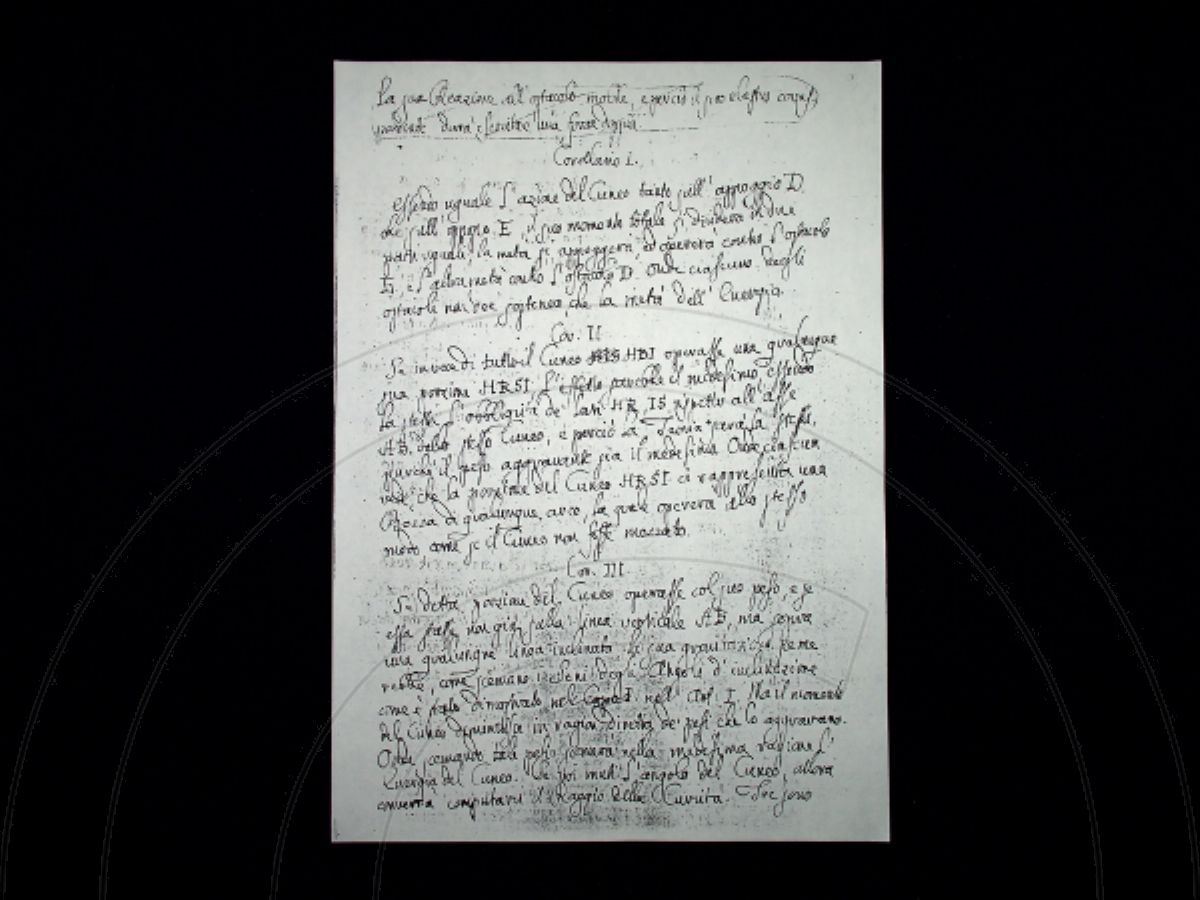 La sua Reazione all' ostacolo mobile, e perciò il suo elastro
dovrà una forza doppia.
Corollario I.
Essendo uguale l'azione del Cuneo tanto sull' appoggio D.
che sull' appogio E, il suo momento totale si dividerà in due
parti uguali; la metà si appoggerà ed opererà contro l'ostacolo
e l'altra metà contro l'ostacolo D. Onde ciascuno degli
ostacoli non sostenen che la metà dell' Energia.
Cor. II
Se invece di tutto il Cuneo HDI operasse una qualunque
sua porzione HRSI l'effetto il medesimo essendo
la stessa l'obbliquità de' lati HR, IS rispetto all' asse
AB. dello stesso Cuneo, e perciò la Teoria sarà la stessa,
purchè il peso aggravante sia il medesimo. Onde ciascun
vede, che la porzione del Cuneo HRSI ci rappresenta una
di qualunque arco, la quale opererà allo stesso
modo come se il Cuneo non fosse
Cor. III.
Se detta porzione del Cuneo operasse col suo peso, e se
essa stesse non già sulla linea verticale AB, ma sopra
una qualunque linea inclinata la sua
come scemano i seni degli Angoli d' inclinazione
come è stato dimostrato nel nel I. Ma il momento
del Cuneo in ragion diretta de' pesi che lo aggravano.
Onde scemando tal peso scemerà nella medesima ragione l'
Energia del Cuneo. Se poi muti l'angolo del Cuneo, allora
converrà computare il Raggio della Curvità. Tre sono